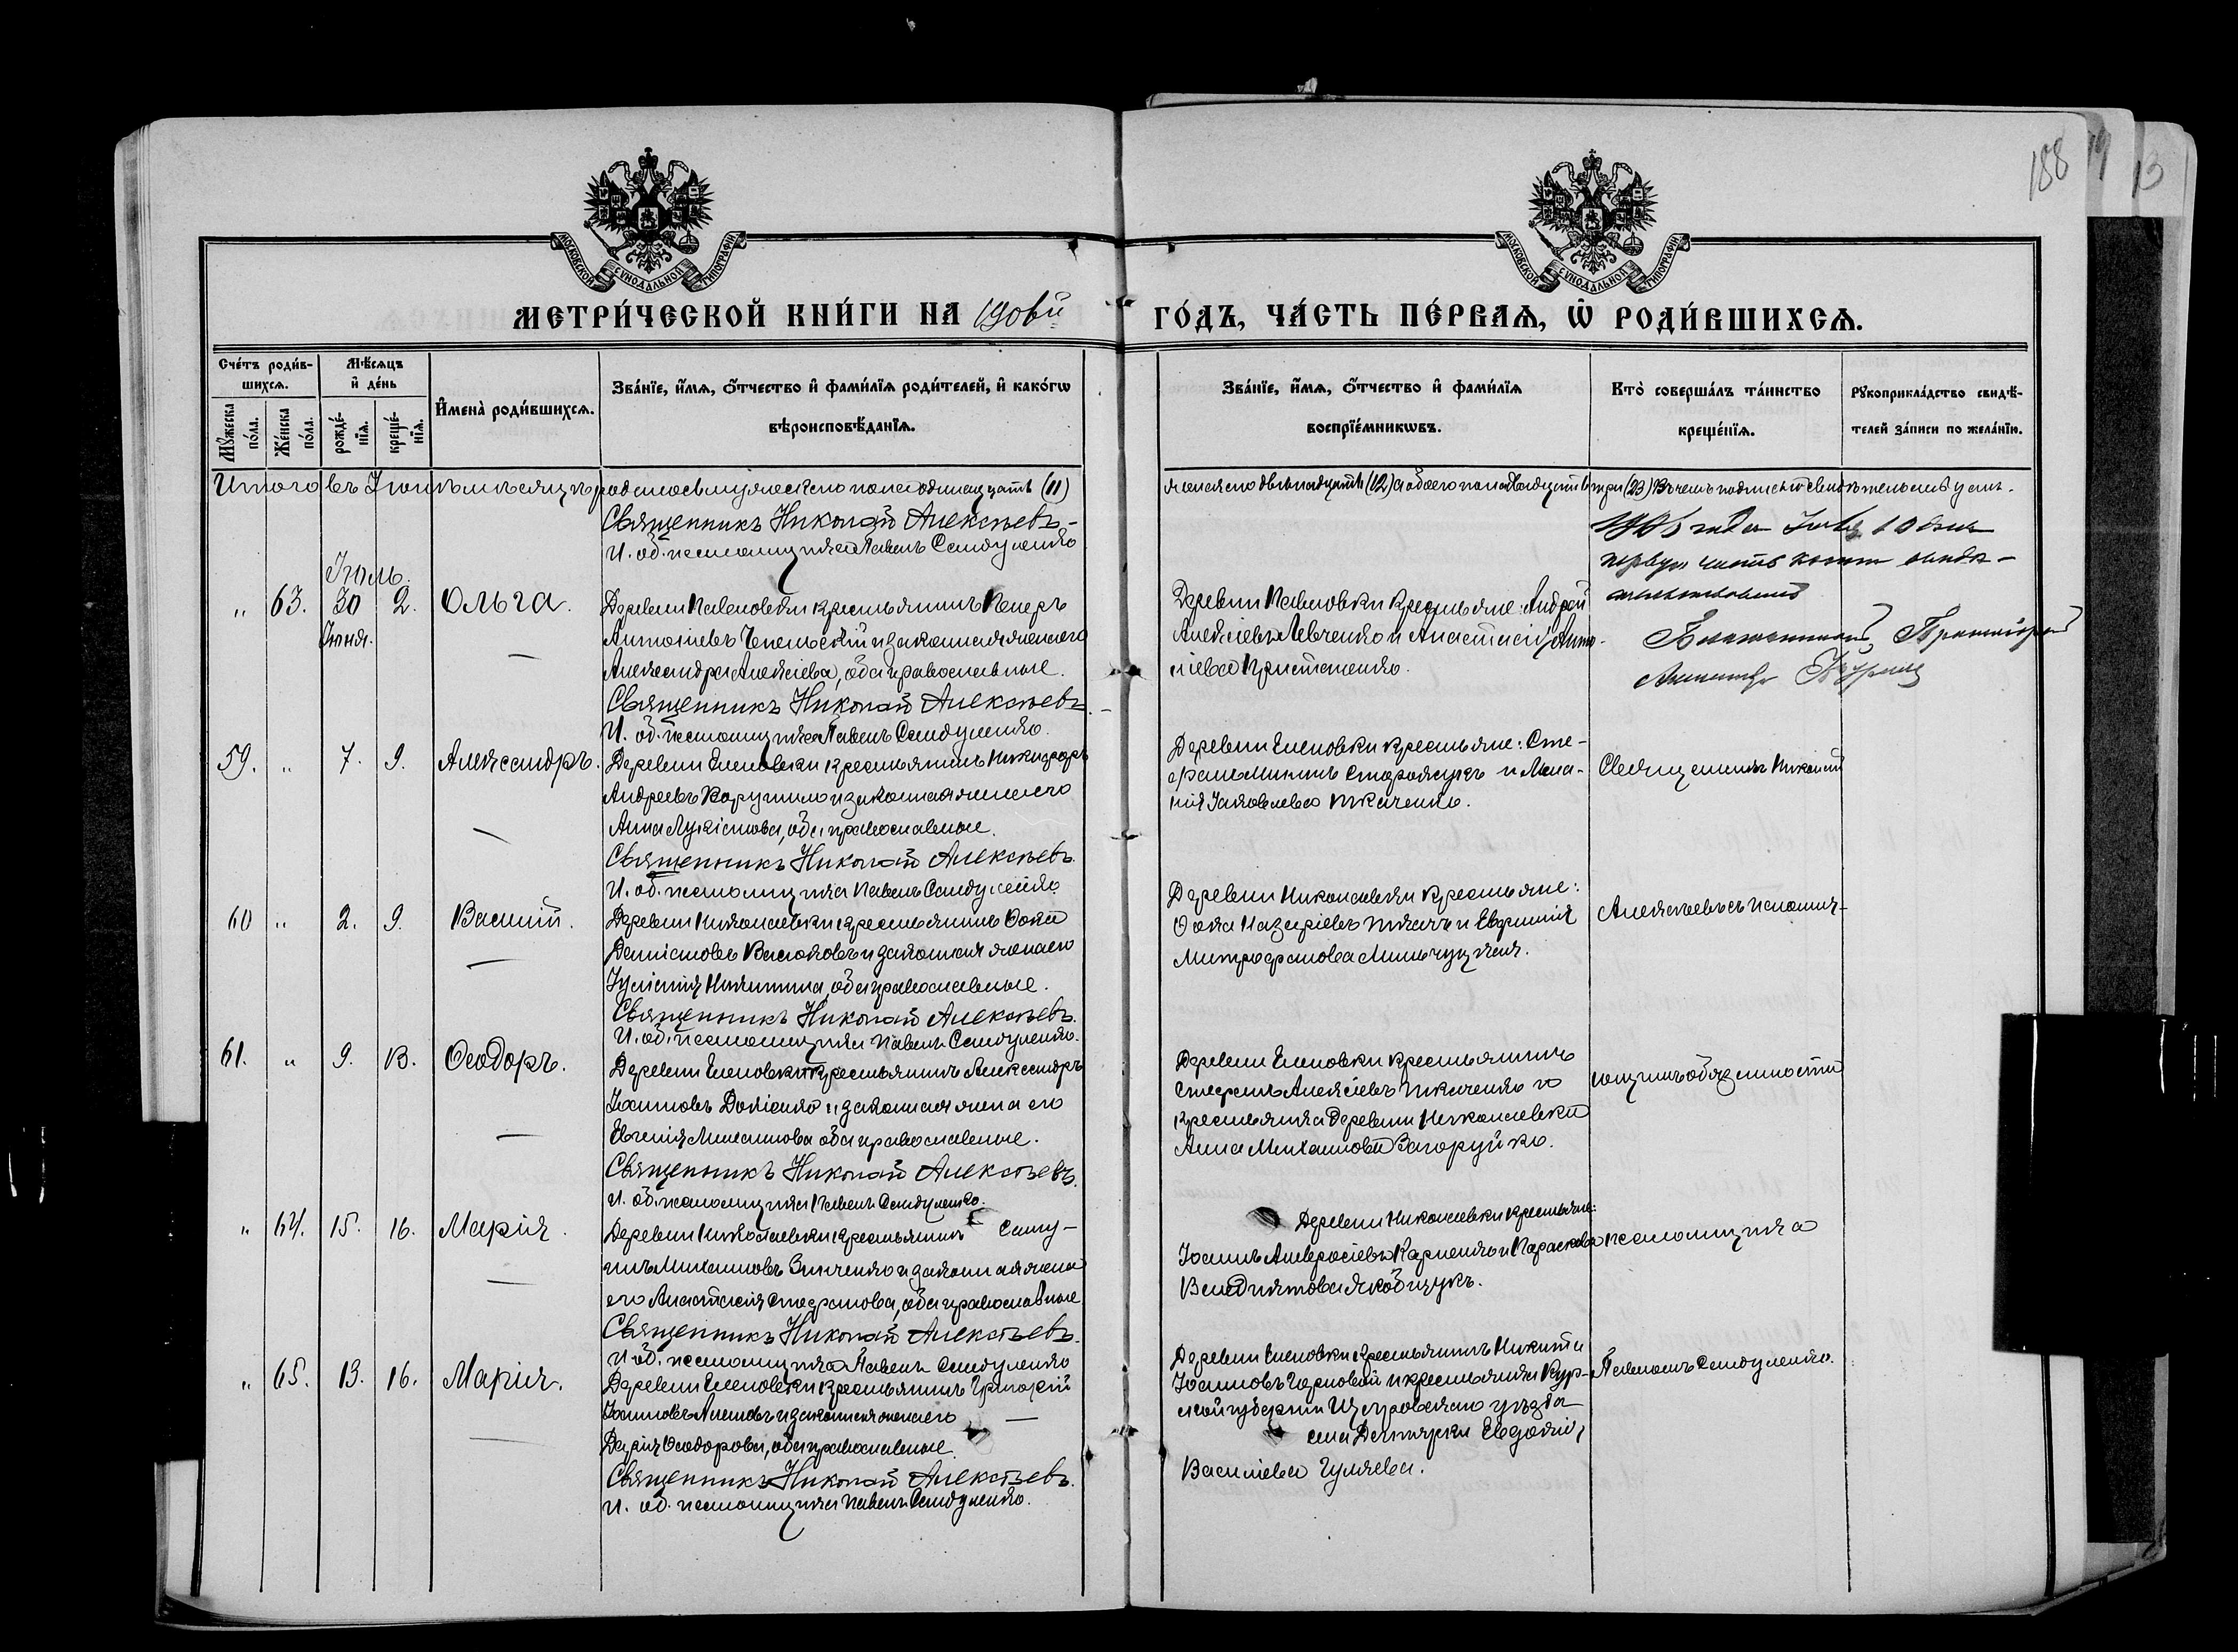 188
13
МОСКОВСКОЙ СѴНОДАЛЬНОЙ ТИПОГРАФІИ
МОСКОВСКОЙ СѴНОДАЛЬНОЙ ТИПОГРАФІИ
МЕТРИ́ЧЕСКОЙ КНИ́ГИ НА ГО́ДЪ, ЧА́СТЬ ПЕ́РВАѦ, Ѡ҆ РОДИ́ВШИХСѦ.
Сче́тъ роди́в-
шихсѧ.
Мѣ́сѧцъ
и҆ де́нь
Мꙋ́жеска по́ла.
Же́нска по́ла.
рожде́-
нїѧ.
креще́-
нїѧ.
И҆мена̀ роди́вшихсѧ.
Зва́нїе, и҆́мѧ, ѻ҆́тчество и҆ фами́лїѧ роди́телей, и҆ како́гѡ
вѣроисповѣ́данїѧ.
Зва́нїе, и҆́мѧ, ѻ҆́тчество и҆ фами́лїѧ
воспрїе́мникѡвъ.
Кто̀ соверша́лъ та́инство
креще́нїѧ.
Рꙋкоприкла́дство свидѣ́-
телей за́писи по жела́нїю.
Итого въ Іюнѣ мѣсяцѣ родилось мужескаго пола одинадцать (11)
женскаго двѣнадцать (12) а обоего пола двадцать три (23) Въ чемъ подписомъ свидѣтельствуемъ.
Священникъ Николай Алексѣевъ
И. об. псаломщика Павелъ Сандуленко
Іюль.
" 63. 30 2. Ольга.
Іюня.
Деревни Павловки крестьянинъ Петръ
Антоніевъ Чепельскій и законная жена его
Александра Алексіева, оба православные.
Деревни Павловки крестьяне: Андрей
Алексіевъ Левченко и Анастасія Анто-
ніева Пристаненко.
Священникъ Николай Алексѣевъ
И. об. псаломщика Павелъ Сандуленко.
59. " 7. 9. Александръ.
Деревни Еленовки крестьянинъ Никифоръ
Андреевъ Корутило и законная жена его
Анна Лукіанова, оба православные.
Деревни Еленовки крестьяне: Сте-
фанъ Мининъ Стародубъ и Мела-
нія Іаковлева Ткаченко.
Священникъ Николай
Священникъ Николай Алексѣевъ.
И. об. псаломщика Павелъ Сандуленко
60 " 2. 9. Василій.
Деревни Николаевки крестьянинъ Ѳома
Даміановъ и законная жена его
Іуліанія Никитина, оба православные.
Деревни Николаевки крестьяне:
Ѳома Назаріевъ Ткачъ и Евфимія
Митрофанова
Алексѣевъ съ исполня-
Священникъ Николай Алексѣевъ.
И. об. псаломщика Павелъ Сандуленко.
61. " 9. 13. Ѳеодоръ.
Деревни Еленовки крестьянинъ Александръ
Іоанновъ и законная жена его
Евгенія Михаилова оба православные.
Деревни Еленовки крестьянинъ
Стефанъ Алексіевъ Ткаченко и
крестьянка Деревни Николаевки
Анна Михаилова Загоруйко.
ющимъ обязанности
Священникъ Николай Алексѣевъ.
И. об. псаломщика Павелъ Сандуленко.
" 64. 15. 16. Марія.
Деревни Николаевки крестьянинъ Саму-
илъ Михаиловъ Зинченко и законная жена
его Анастасія Стефанова, оба православные
Деревни Николаевки крестьяне:
Іоаннъ Амвросіевъ Карпенко и Параскева
Венедиктова Якобчукъ.
псаломщика
Священникъ Николай Алексѣевъ.
И. об. псаломщика Павелъ Сандуленко
" 65. 13. 16. Марія.
Деревни Еленовки крестьянинъ Григорій
Іоанновъ и законная жена его
Дарія Ѳеодорова, оба православные.
Деревни Еленовки крестьянинъ Никита
Іоанновъ Чорновой и крестьянка Кур-
ской губерніи уѣзда
села Евдокія
Василіева Гуляева.
Павломъ Сандуленко.
Священникъ Николай Алексѣевъ.
И. об. псаломщика Павелъ Сандуленко.